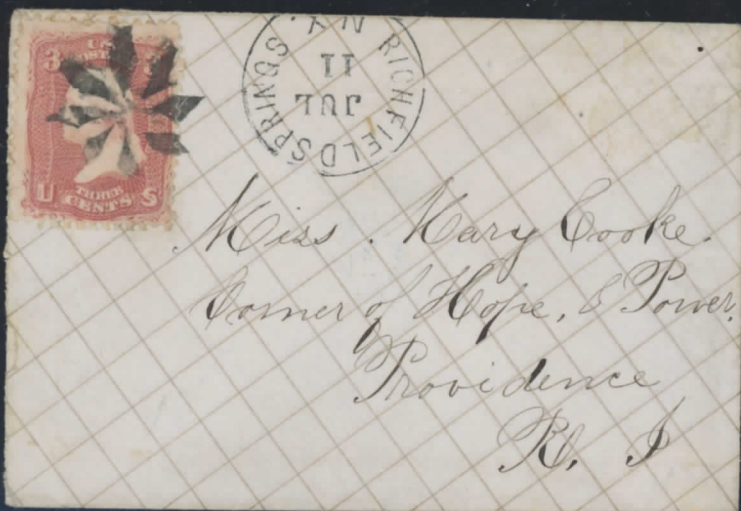 3 U.S. POSTAGE 3
U THREE CENTS S
RICHFIELD SPRINGS. N.Y.
JUL
11
Miss. Mary Cooke.
Corner of Hope, & Power,
Providence
R. I